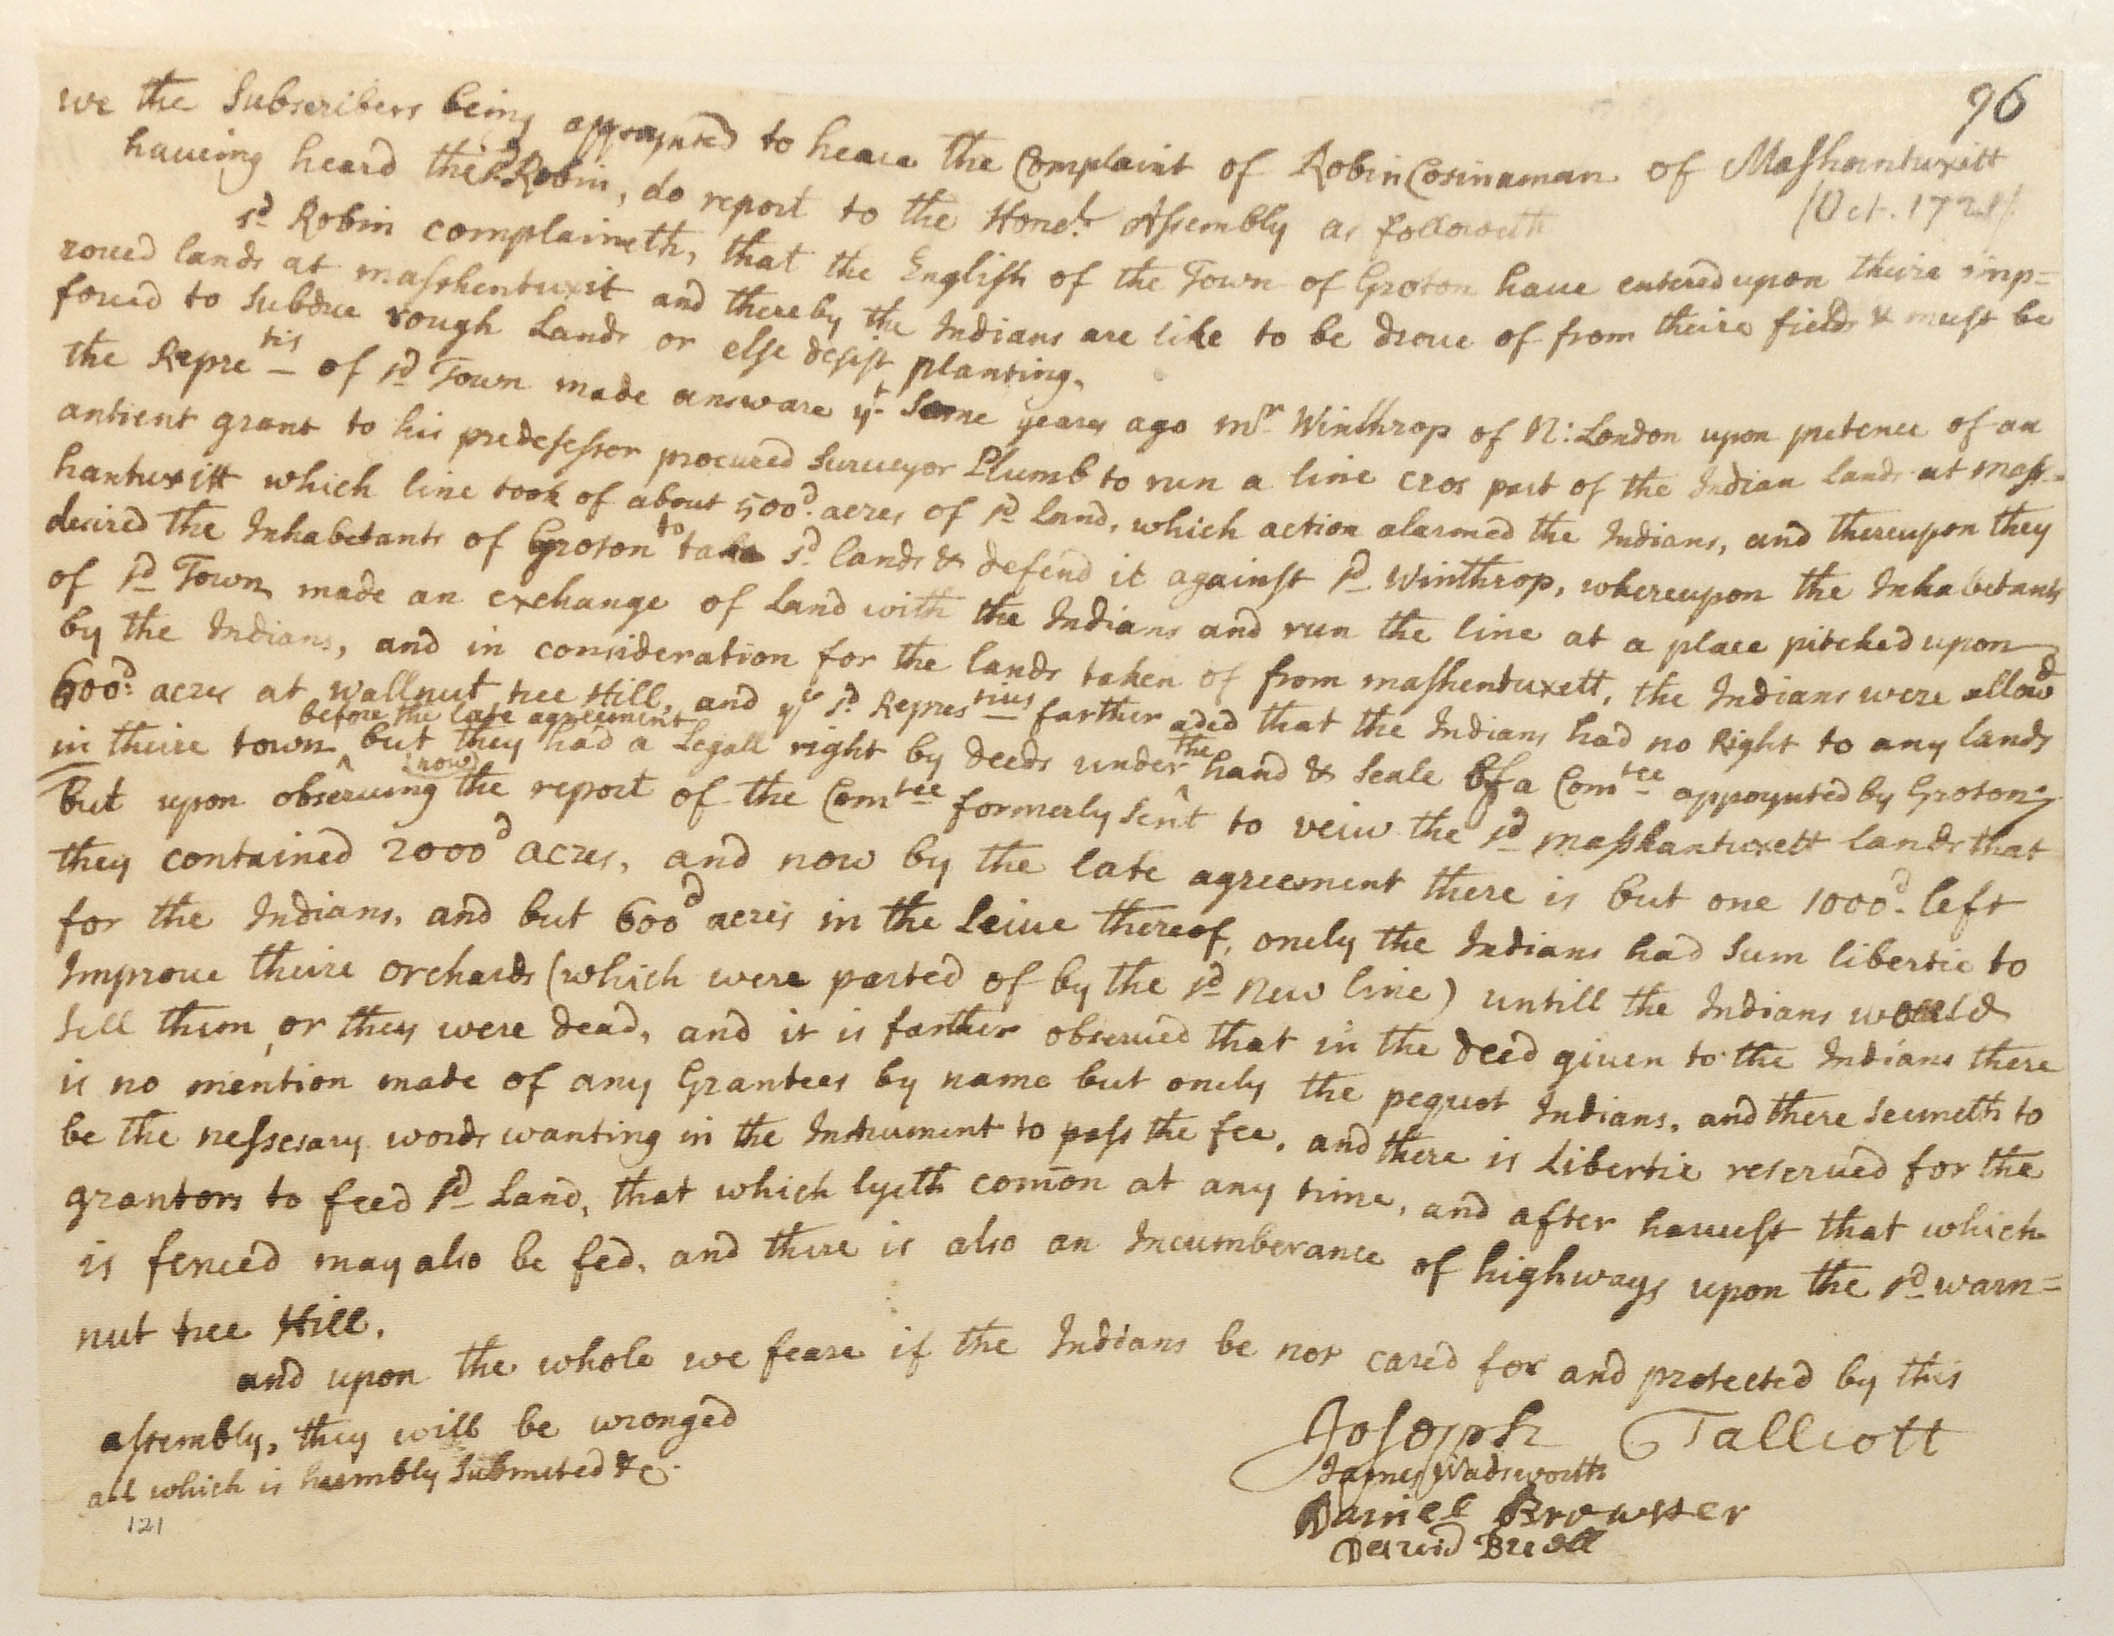 96
we the Subscribers being appoynted to heare the Complaint of Robin Cosinaman of Mashantuxitt
haueing heard the sd Robin, do report to the Honel. Assembly as followeth
(Oct. 1721)
sd Robin complaineth, that the English of the Town of Groton haue entered upon theire imp=
roued lands at mashentuxit and thereby the Indians are like to be droue of from theire fields & must be
foued to subdue rough Lands or else desist planting.
the Repretis of sd Town made answare yt Some yeares ago mr Winthrop of N: London upon pretence of an
antient grant to his predesessor procured Surveyor Plumb to run a line cros part of the Indian lands at mash-
hantuxitt which line took of about 500d. acres of sd Land, which action alarmed the Indians, and thereupon they
desired the Inhabetants of Groton to take sd lands & defend it against sd Winthrop, whereupon the Inhabetants
of sd Town made an exchange of Land with the Indians and run the line at a place pitched upon
by the Indians, and in consideration for the lands taken of from mashentuxett, the Indians were allowd
600d: acres at wallnut tree Hill, and ye sd Represtius farther aded that the Indians had no Right to any lands
in theire town before the late agreement but now they had a Legall right by deeds under the hand & Seale of a Comtee appoynted by Groton
but upon obseruing the report of the Comtee formerly sent to veiw the sd mashantuxett lands that
they contained 2000d acres, and now by the late agreement there is but one 1000d. left
for the Indians, and but 600d acres in the Leiue thereof, onely the Indians had sum libertie to
Improue theire orchards (which were parted of by the sd New line) untill the Indians would
sell them, or they were dead, and it is farther obserued that in the deed giuen to the Indians there
is no mention made of any Grantees by name but onely the pequot Indians, and there seemeth to
be the nessesary words wanting in the Instrument to pass the fee, and there is Libertie reserued for the
grantors to feed sd Land, that which lyeth comon at any time, and after haruest that which
is fenced may also be fed, and there is also an Incumberance of highways upon the sd warn=
nut tree Hill.
and upon the whole we feare if the Indians be not cared for and protected by this
assembly, they will be wronged
all which is humbly Submited &c.
Joseph Tallcott
James Wadsworth
Daniel Brewster
Dauid Buell
121